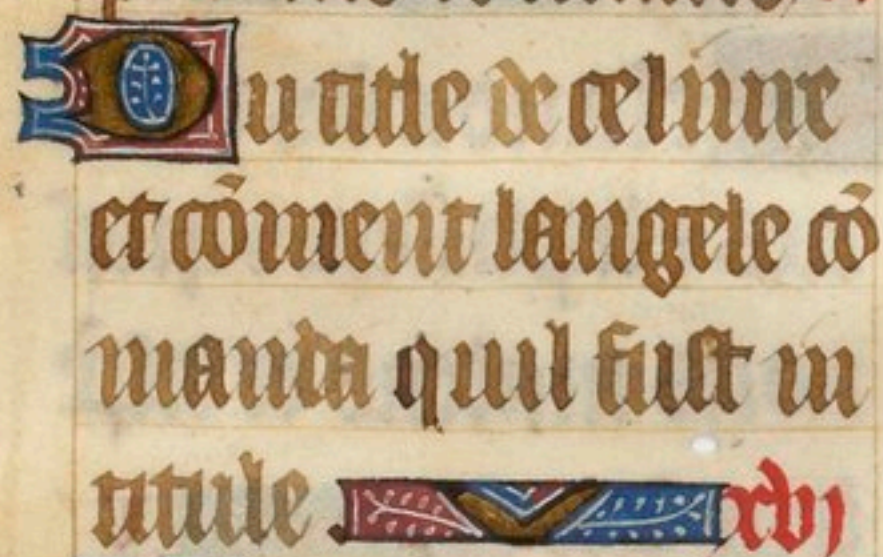 Du title de ce liure
et cōment langele cō
manda quil fust in
titule xvj